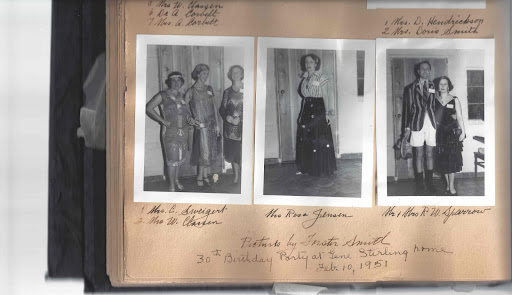 5 Mrs W. Clausen
6 Dr A. Corbett
7 Mrs A. Corbett
1 Mrs. D. Hendrickson
2 Mrs. Doris Smith
1 Mrs. C. Sweigert
2 Mrs W. Clausen
Mrs Rosa Jensen
Mr & Mrs R. W. Sparrow
Pictures by Foster Smith
30th Birthday Party at Gene Stirling home
Feb 10, 1951